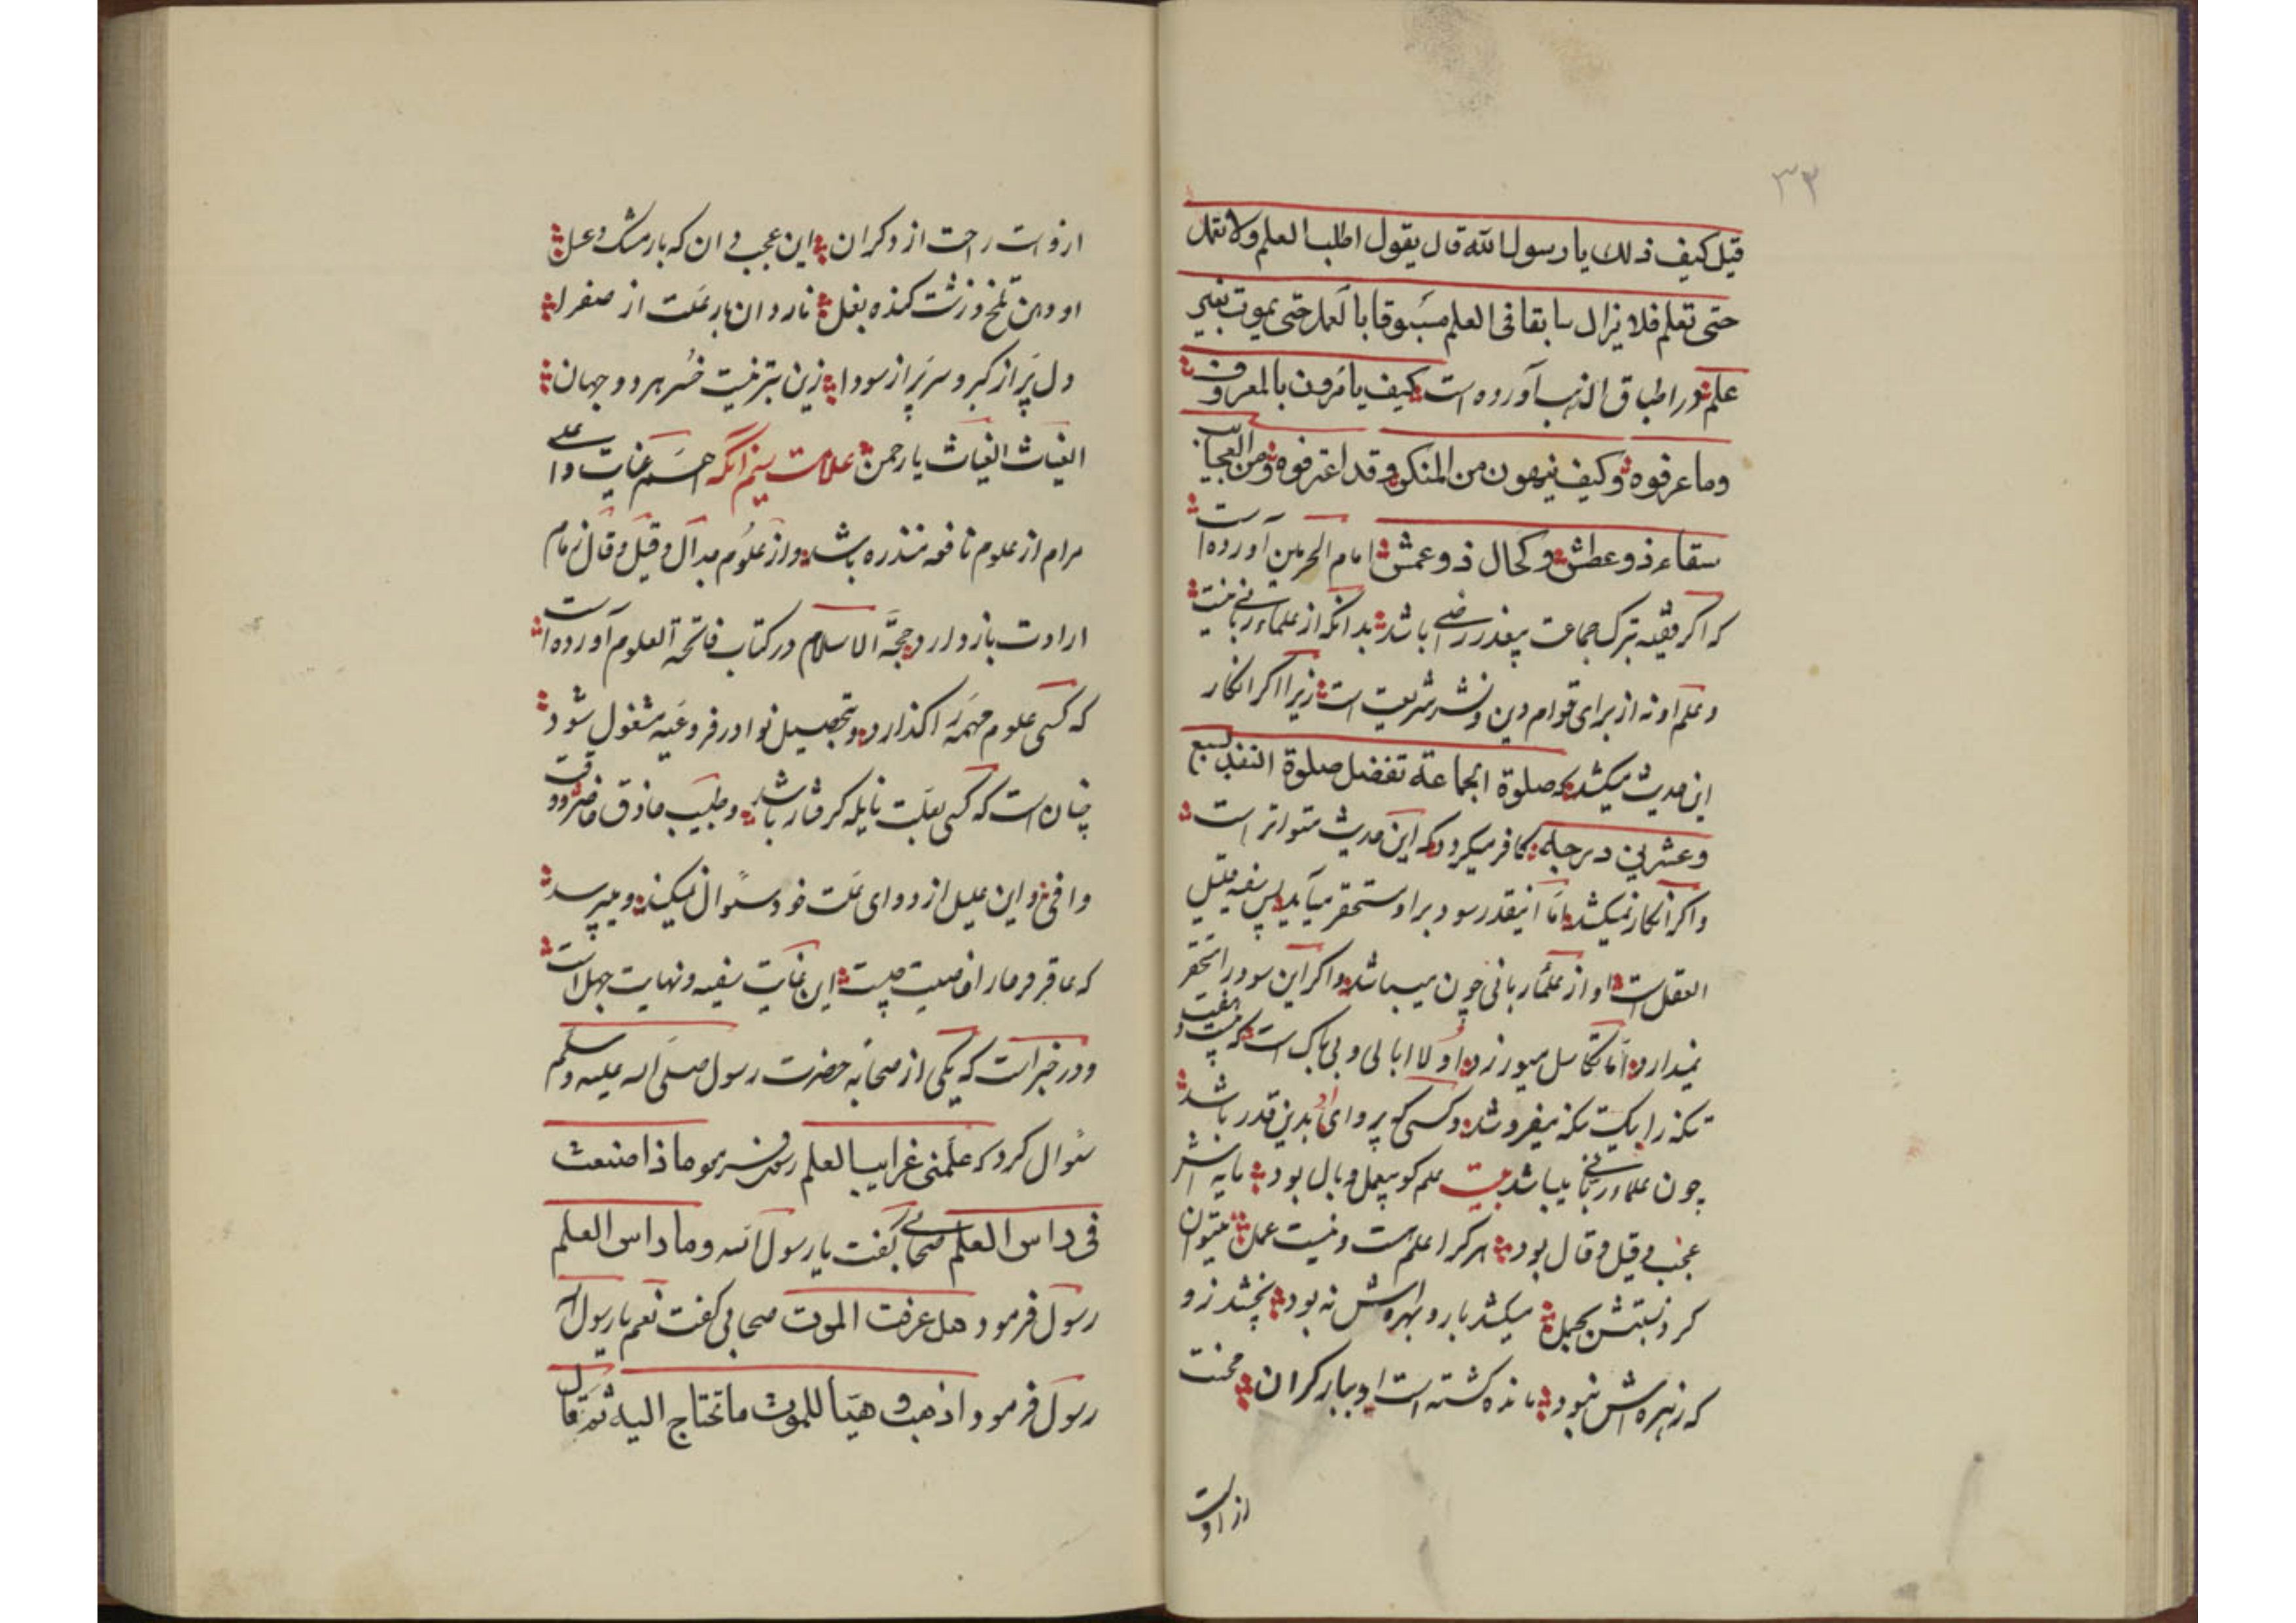 ۳۳
قیل کیف ذلک یا رسول الله قال یقول اطلب العلم ولا تعمل
حتی تعلم فلا یزال سابقا فی العلم مسبوقا بالعمل حتی یموت بغیر
علم در اطباق الذهب آورده است کیف یامرون بالمعروف
وما عرفوه وکیف ینهون من المنکر وقد اعترفوه ومن العجایب
سقاء ذو عطش وکحال ذو عمش امام الحرمین آورده است
که اکر فقیه بترک جماعت بیعذر راضی باشد بدانکه از علماء ربانی نیست
و علم او نه از برای قوام دین و نشر شریعت است زیرا اکر انکار
این حدیث میکند که صلوة الجماعة تفضل صلوة الفذ بسبع
وعشرین درجة کافر میکردد که این حدیث متواتر است
واکر انکار نمیکند اما اینقدر سود بر او مستحقر میآید پس سفیه قلیل
العقل است او از علماء ربانی چون میباشد واکر این سود را محقر
نمیدارد اما تکاسل میورزد او لا ابالی و بی باک است که بیست و هفت
تنکه را بیک تنکه میفروشد و کسی که پروای او بدین قدر باشد
چون علماء ربانی میباشد بیت علم کو بیعمل وبال بود مایه اش
عجب و قیل و قال بود هر کرا علم هست و نیست عمل میتوان
کرد نسبتش بجمل میکشد بار و بهره اش نه بود بخشد زر و
که زهره اش نبود مانده کشته است او ببار کران محنت
از اوست
از اوست راحت از دکران این عجب و ان که بار مشک و عسل
او دهن تلخ و زشت کنده بغل نار و ان بار علت از صفرا
دل پر از کبر و سر پر از سودا زین بتر نیست خسر هر دو جهان
الغیاث الغیاث یا رحمن علامت سیم انکه همم عنایت و اعلی
مرام از علوم نافعه منذره باشد و از علوم جدال و قیل و قال زمام
ارادت باز دارد حجة الاسلام در کتاب فاتحة العلوم آورده است
که کسی علوم مهمه را کذارد و بتحصیل نوادر فروعیه مشغول شود
چنان است که کسی بعلت نایله کرفتار باشد و طبیب حاذق حاضر و وقت
وافی و این علیل از دوای علت خود سئوال نمیکند و میپرسد
که عاقرقرها را خاصیت چیست این غایت سفیه و نهایت جهل است
و در خبر است که یکی از صحابه حضرت رسول صلی الله علیه وسلم
سئوال کرد که علمنی غرایب العلم رسول فرمود ما ذا صنعت
فی راس العلم صحابی کفت یا رسول الله وما راس العلم
رسول فرمود هل عرفت الموت صحابی کفت نعم یا رسول الله
رسول فرمود اذهب و هیأ للموت ما تحتاج الیه ثم تعال